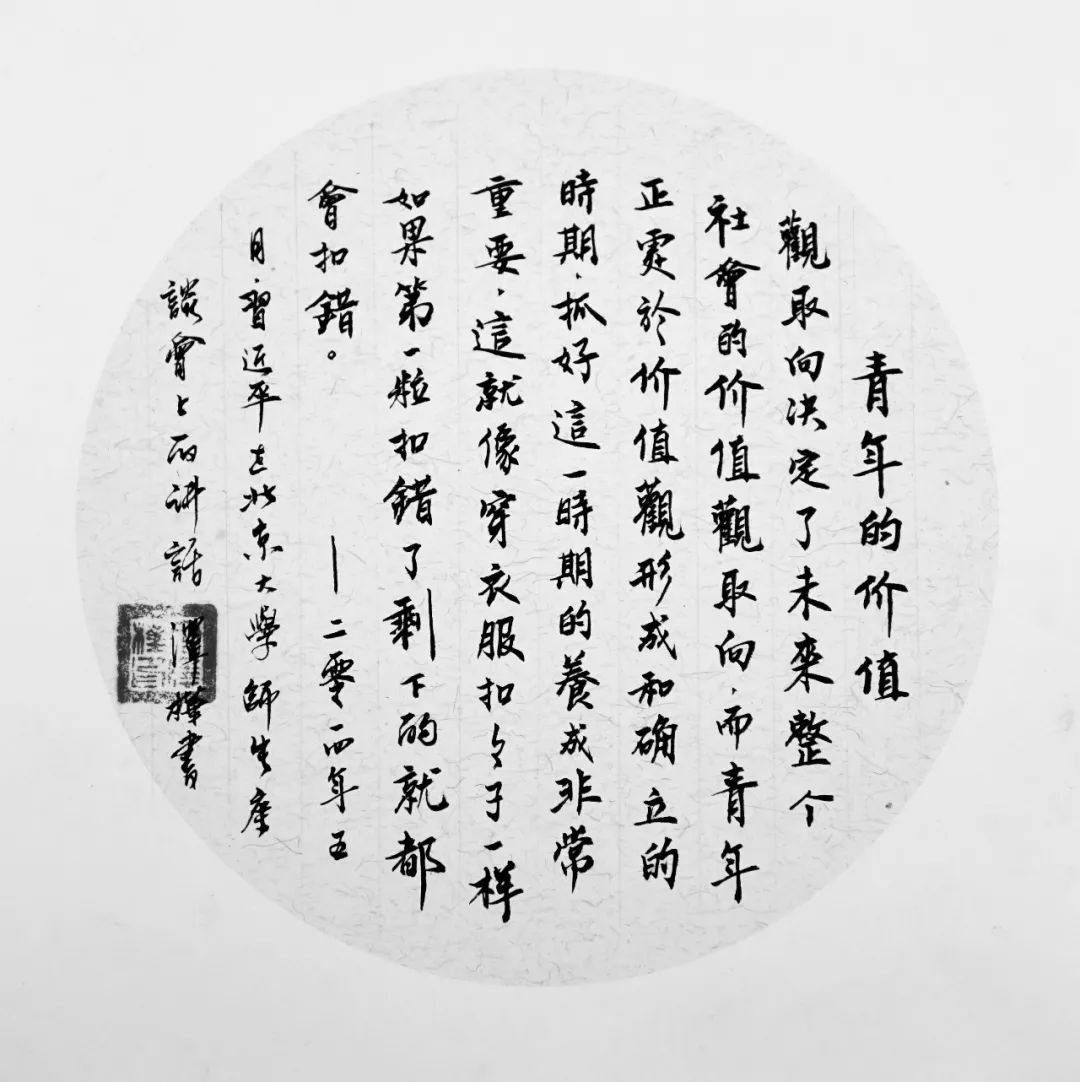 青年的价值
觀取向决定了未來整个
社會的价值觀取向，而青年
正處於价值觀形成和确立的
時期，抓好這一時期的養成非常
重要，這就像穿衣服扣々子一樣
如果第一粒扣錯了剩下的就都
會扣錯。——二零一四年五
月，習近平在北京大學師生座
談會上的讲話 書